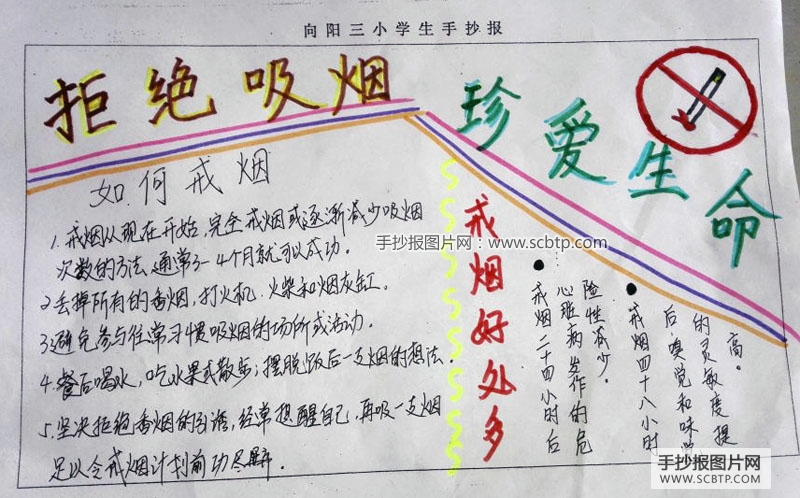 向阳三小学生手抄报
拒绝吸烟
珍爱生命
如何戒烟
1.戒烟从现在开始,完全戒烟或逐渐减少吸烟
次数的方法,通常3-4个月就可以成功.
2.丢掉所有的香烟,打火机.火柴和烟灰缸.
3.避免参与往常习惯吸烟的场所或活动.
4.餐后喝水,吃水果或散步;摆脱饭后一支烟的想法.
5.坚决拒绝香烟的引诱,经常提醒自己,再吸一支烟
足以令戒烟计划前功尽弃.
戒烟好处多
●戒烟二十四小时后
心脏病发作的危
险性减少。
●戒烟四十八小时
后嗅觉和味
的灵敏度提
高。
手抄报图片网:www.scbtp.com
手抄报图片网
WWW.SCBTP.COM